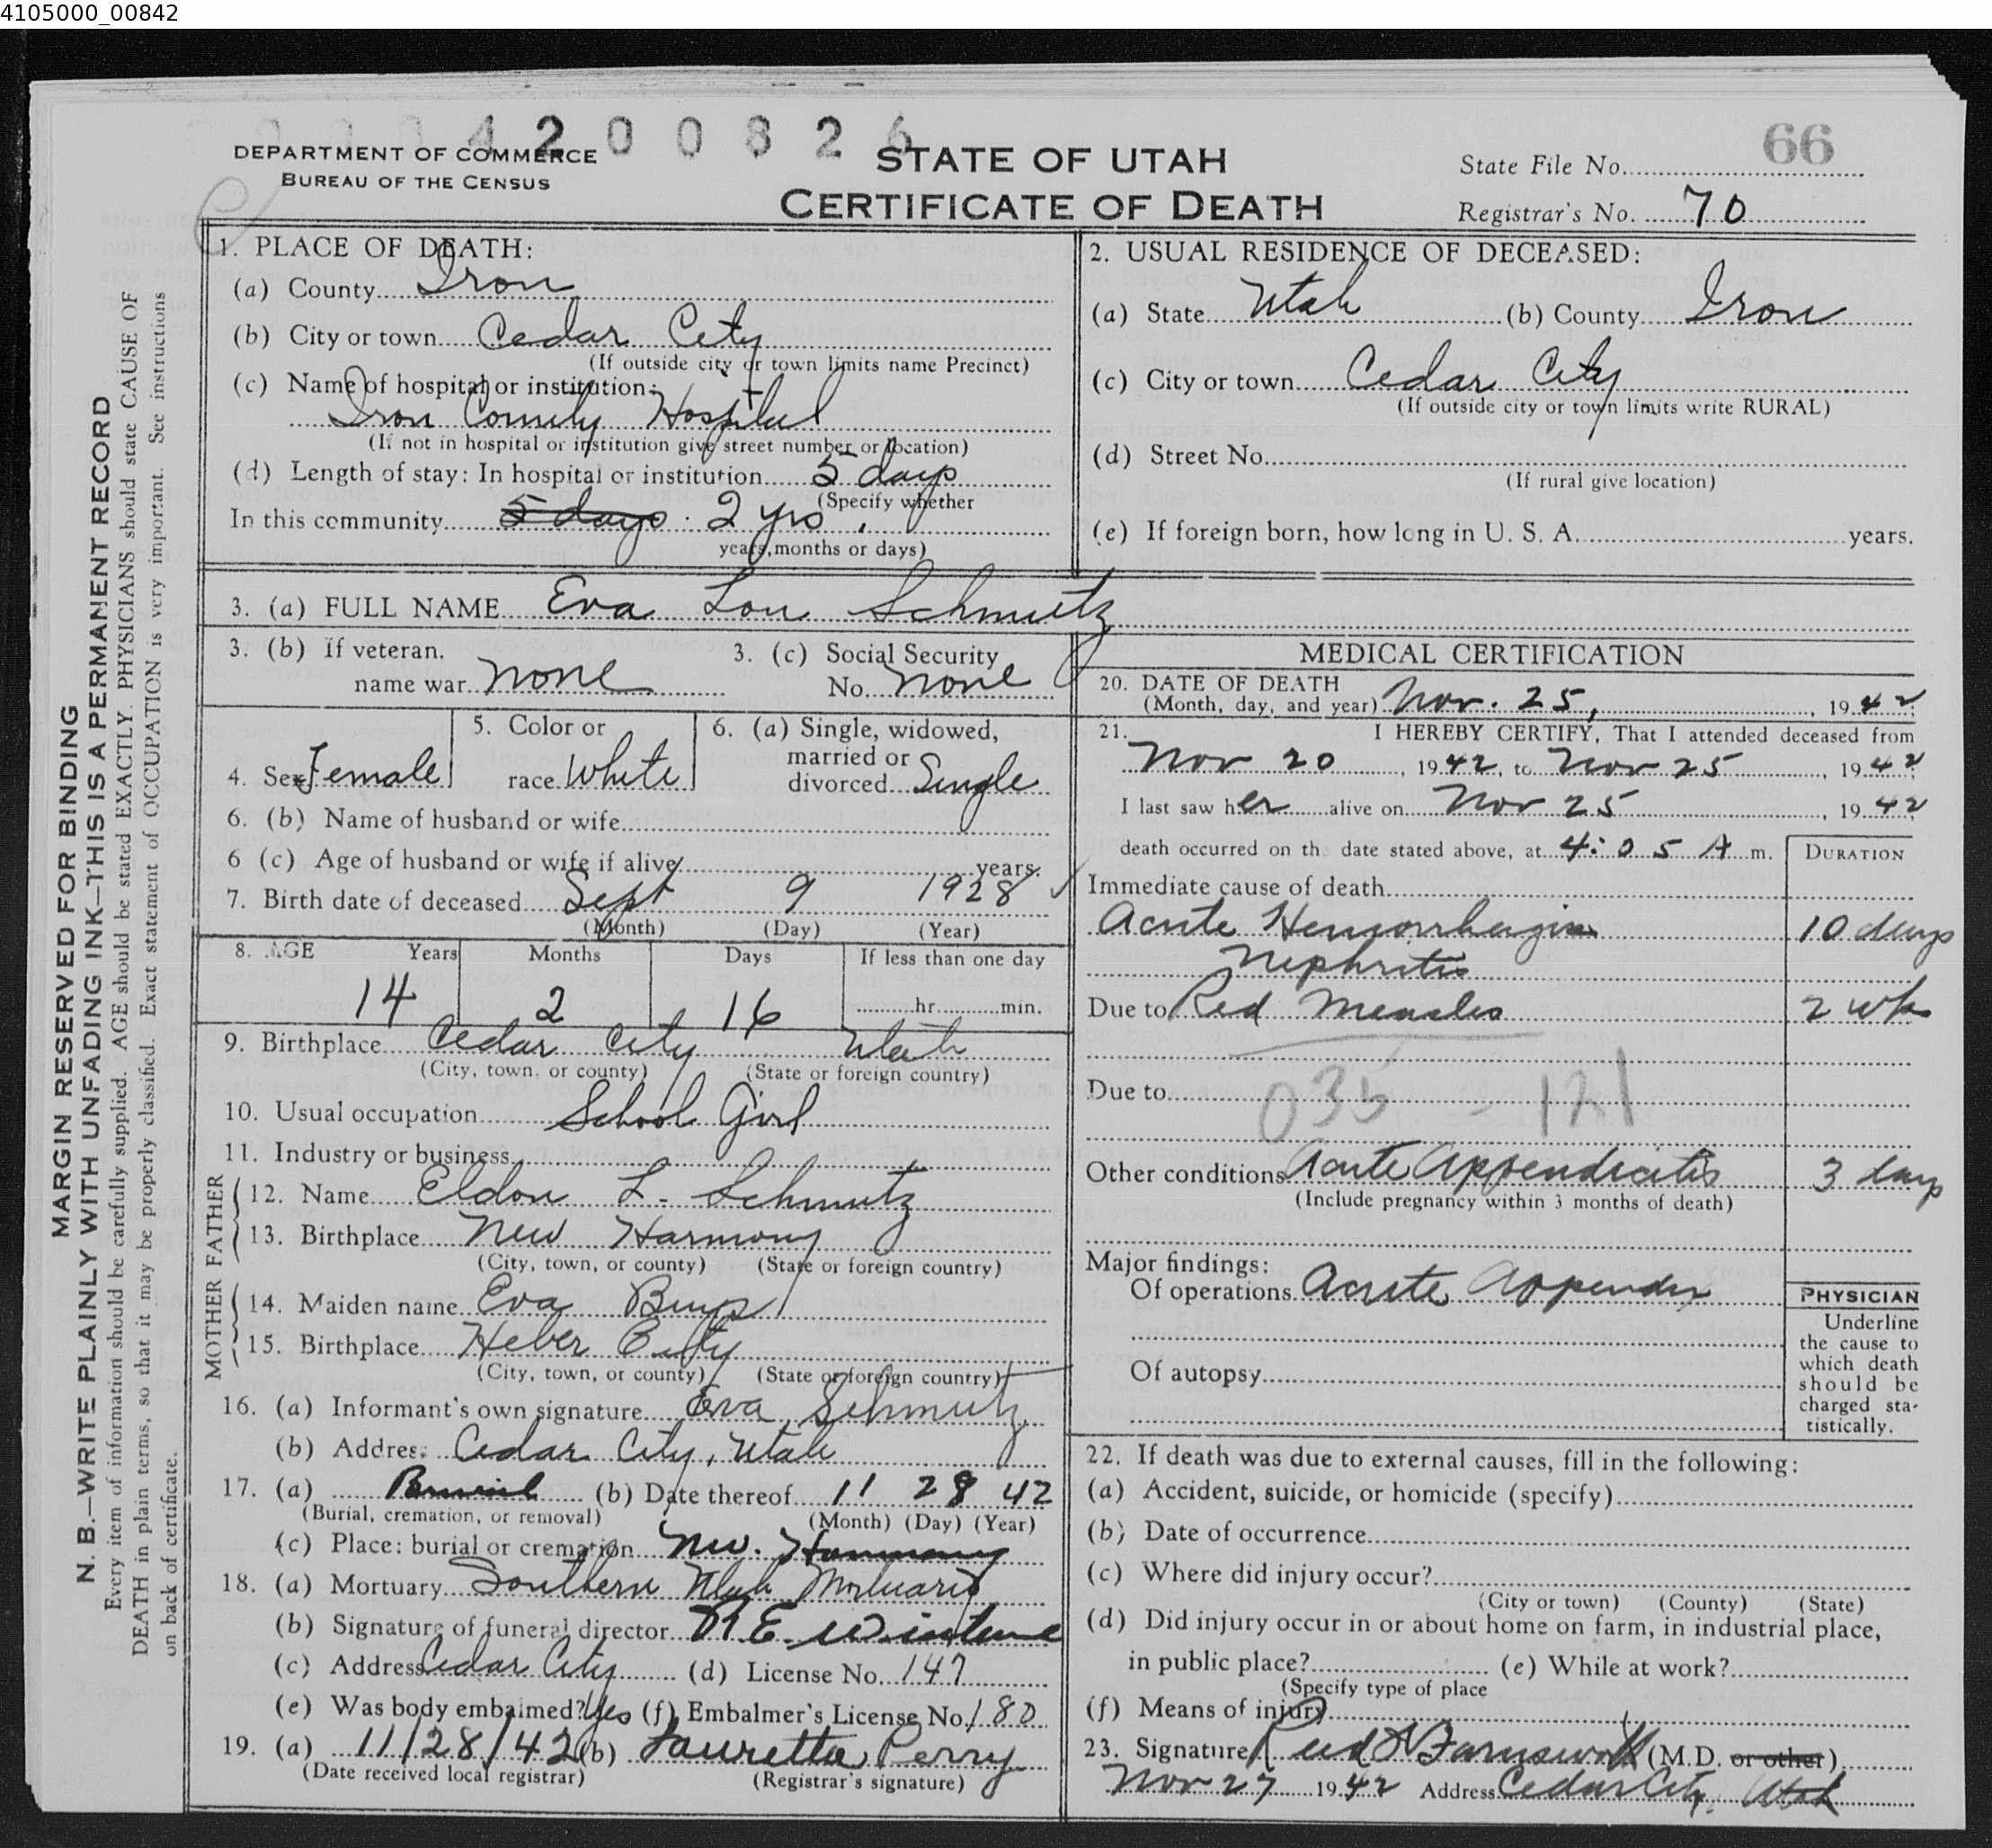 4105000_00842
4 2 0 0 8 2 6
DEPARTMENT OF COMMERCE
BUREAU OF THE CENSUS
STATE OF UTAH
CERTIFICATE OF DEATH
State File No. 66
Registrar's No. 70
MARGIN RESERVED FOR BINDING
N. B.—WRITE PLAINLY WITH UNFADING INK—THIS IS A PERMANENT RECORD
Every item of information should be carefully supplied. AGE should be stated EXACTLY. PHYSICIANS should state CAUSE OF
DEATH in plain terms, so that it may be properly classified. Exact statement of OCCUPATION is very important. See instructions
on back of certificate.
1. PLACE OF DEATH:
(a) County Iron
(b) City or town Cedar City
(If outside city or town limits name Precinct)
(c) Name of hospital or institution:
Iron County Hospital
(If not in hospital or institution give street number or location)
(d) Length of stay: In hospital or institution 5 days
(Specify whether
In this community 5 days 2 yrs.
years, months or days)
2. USUAL RESIDENCE OF DECEASED:
(a) State Utah (b) County Iron
(c) City or town Cedar City
(If outside city or town limits write RURAL)
(d) Street No.
(If rural give location)
(e) If foreign born, how long in U. S. A. years.
3. (a) FULL NAME Eva Lou Schmutz
3. (b) If veteran,
name war none
3. (c) Social Security
No. none
4. Sex Female
5. Color or
race White
6. (a) Single, widowed,
married or
divorced Single
6. (b) Name of husband or wife
6 (c) Age of husband or wife if alive years.
7. Birth date of deceased Sept 9 1928
(Month) (Day) (Year)
8. AGE Years Months Days If less than one day
14 2 16 hr. min.
9. Birthplace Cedar City Utah
(City, town, or county) (State or foreign country)
10. Usual occupation School Girl
11. Industry or business
FATHER
12. Name Eldon L. Schmutz
13. Birthplace New Harmony
(City, town, or county) (State or foreign country)
MOTHER
14. Maiden name Eva
15. Birthplace Heber City
(City, town, or county) (State or foreign country)
16. (a) Informant's own signature Eva Schmutz
(b) Address Cedar City, Utah
17. (a) Burial (b) Date thereof 11 28 42
(Burial, cremation, or removal) (Month) (Day) (Year)
(c) Place: burial or cremation New Harmony
18. (a) Mortuary Southern Utah Mortuary
(b) Signature of funeral director
(c) Address Cedar City (d) License No. 147
(e) Was body embalmed? Yes (f) Embalmer's License No. 180
19. (a) 11/28/42 (b) Lauretta Perry
(Date received local registrar) (Registrar's signature)
MEDICAL CERTIFICATION
20. DATE OF DEATH
(Month, day, and year) Nov. 25, 1942
21. I HEREBY CERTIFY, That I attended deceased from
Nov 20, 1942, to Nov 25, 1942
I last saw her alive on Nov 25, 1942
death occurred on the date stated above, at 4:05 A m.
DURATION
Immediate cause of death
Acute Hemorrhagic 10 days
Nephritis
Due to Red Measles 2 wks
Due to
035 - 121
Other conditions Acute Appendicitis 3 days
(Include pregnancy within 3 months of death)
Major findings:
Of operations Acute Appendix
Of autopsy
PHYSICIAN
Underline
the cause to
which death
should be
charged sta-
tistically.
22. If death was due to external causes, fill in the following:
(a) Accident, suicide, or homicide (specify)
(b) Date of occurrence
(c) Where did injury occur?
(City or town) (County) (State)
(d) Did injury occur in or about home on farm, in industrial place,
in public place? (e) While at work?
(Specify type of place
(f) Means of injury
23. Signature Reed Farnsworth (M.D. or other)
Nov 27 1942 Address Cedar City, Utah